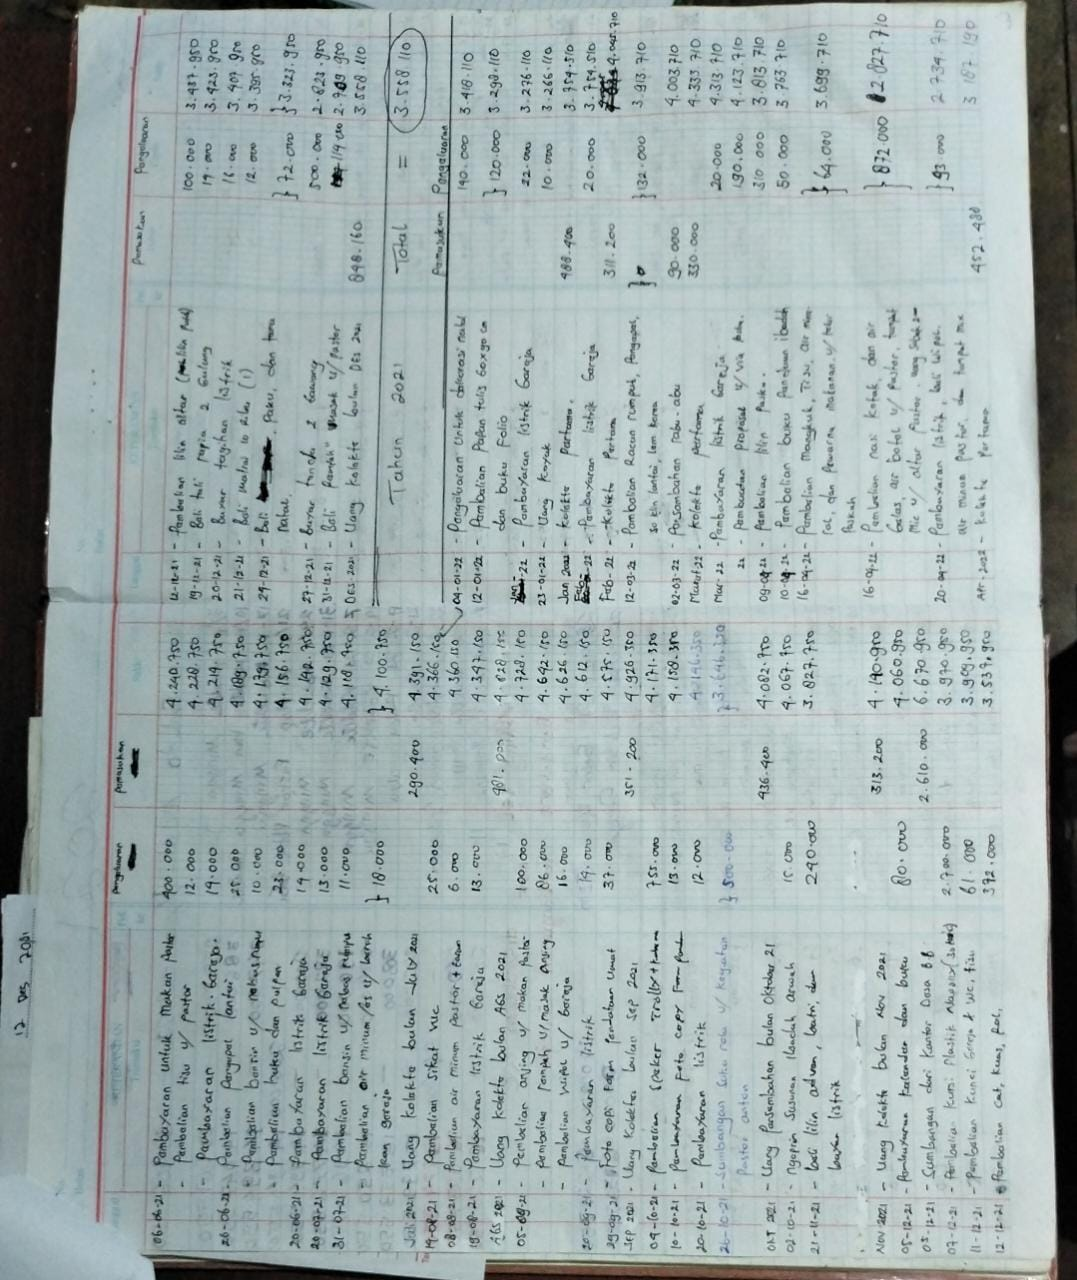 12 Des 2021
Pengeluaran Pemasukan
06-06-21 - Pembayaran untuk Makan Pastor 400.000 4.240.750
- Pembelian tisu u/ pastor 12.000 4.228.750
- Pembayaran listrik Gereja. 14.000 4.214.750
26-06-21 - Pembelian Pengepel lantai 25.000 4.189.750
- Pembelian bensin u/ 10.000 4.179.750
- Pembelian buku dan pulpen 23.000 4.156.750
20-06-21 - Pembayaran listrik Gereja 14.000 4.142.750
20-07-21 - Pembayaran listrik Gereja 13.000 4.129.750
31-07-21 - Pembelian bensin u/ 11.000 4.118.750
- Pembelian air minum
kan gereja } 18.000 } 4.100.750
Juli 2021 - Uang kolekte bulan July 2021 290.400 4.391.150
14-08-21 - Pembelian sikat WC 25.000 4.366.150
08-08-21 - Pembelian air minum pastor 6.000 4.360.150
19-08-21 - Pembayaran listrik Gereja 13.000 4.347.150
AGS 2021 - Uang kolekte bulan AGS 2021
05-09-21 - Pembelian anjing u/ makan pastor 100.000 4.728.150
- Pembelian rempah u/ masak anjing 86.000 4.642.150
- Pembelian u/ Gereja 16.000 4.626.150
20-09-21 - Pembayaran listrik 14.000 4.612.150
29-09-21 - Foto copi Form pendataan Umat 37.000 4.575.150
Sep 2021 - Uang kolekte bulan Sep 2021 351.200 4.926.350
09-10-21 - Pembelian speker Trolly 755.000 4.171.350
10-10-21 - Pembayaran foto copy 13.000 4.158.350
20-10-21 - Pembayaran listrik 12.000 4.146.350
26-10-21 - Sumbangan suka rela u/ kegiatan
Pastor anton } 500.000 } 3.646.350
OKT 2021 - Uang Persembahan bulan Oktober 21 436.400 4.082.750
02-10-21 - ngeprin susunan Ibadah arwah 15.000 4.067.750
21-11-21 - beli lilin adven, batri, dan 240.000 3.827.750
bayar listrik
Nov 2021 - Uang kolekte bulan Nov 2021 313.200 4.140.950
05-12-21 - Pembayaran kalender dan buku 80.000 4.060.950
05-12-21 - Sumbangan dari Kantor Desa 2.610.000 6.670.950
07-12-21 - Pembelian kursi Plastik Napoli 2.700.000 3.970.950
11-12-21 - Pembelian kunci Gereja & WC, tisu 61.000 3.909.950
12-12-21 - Pembelian cat, kuas, rol, 372.000 3.537.950
Pemasukan Pengeluaran
12-12-21 - Pembelian lilin altar 100.000 3.437.950
19-12-21 - Beli tali rapia 2 Gulung 14.000 3.423.950
20-12-21 - Bayar tagihan listrik 16.000 3.407.950
21-12-21 - Beli matrai 10 ribu (1) 12.000 3.395.950
24-12-21 - Beli Paku, dan
natal. } 72.000 } 3.323.950
27-12-21 - Bayar tenda 2 500.000 2.823.950
31-12-21 - Beli Rempah" masak u/ pastor 2.709.950
Des 2021 - Uang kolekte bulan Des 2021 848.160 3.558.110
Tahun 2021 Total = 3.558.110
Pemasukan Pengeluaran
04-01-22 - Pengeluaran Untuk dekorasi natal 140.000 3.418.110
12-01-22 - Pembelian Papan tulis 60x90 cm
dan buku folio } 120.000 } 3.298.110
Jan-22 - Pembayaran listrik Gereja 22.000 3.276.110
23-01-22 - Uang koyak 10.000 3.266.110
Jan 2022 - kolekte Pertama. 488.400 3.754.510
Feb-22 - Pembayaran listrik Gereja 20.000
Feb-22 - kolekte Pertama 311.200 4.045.710
12-03-22 - Pembelian Racun rumput, Pengepel,
So klin lantai, lem korea } 132.000 3.913.710
02-03-22 - Persembahan rabu-abu 90.000 4.003.710
Maret 22 - kolekte pertama 330.000 4.333.710
Mar-22 - Pembayaran listrik Gereja. 20.000 4.313.710
22 - Pembuatan Proposal u/ 190.000 4.123.710
09-04-22 - Pembelian lilin Paska. 310.000 3.813.710
10-04-22 - Pembelian buku Panduan ibadah 50.000 3.763.710
16-04-22 - Pembelian Mangkuk, Tisu,
dan Pewarna makanan u/ telur
Paskah } 64.000 3.699.710
16-04-22 - Pembelian nasi kotak, dan air
Gelas, air botol u/ Pastor,
Mic u/ altar Pastor } 872.000 2.827.710
20-04-22 - Pembayaran listrik, beli
air minum Pastor, dan tempat mic } 93.000 2.734.710
Apr-2022 - Kolekte Pertama 452.480 3.187.190